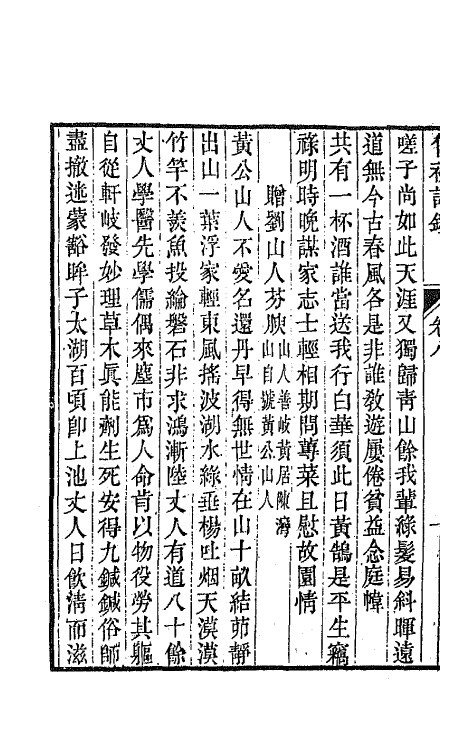 卷八
嗟子尚如此天涯又獨歸青山餘我輩綠髮易斜暉遠
道無今古春風各是非誰教遊屢倦貧益念庭幃
共有一杯酒誰當送我行白華須此日黃鵠是平生竊
祿明時晚謀家志士輕相期問蓴菜且慰故園情
贈劉山人芬腴山人善岐黃居陳灣山自號黃公山人
黃公山人不愛名還丹早得無世情在山十畝結茆靜
出山一葉浮家輕東風搖波湖水綠垂楊吐烟天漠漠
竹竿不羨魚投綸磐石非求鴻漸陸丈人有道八十餘
丈人學醫先學儒偶來廛市爲人命肯以物役勞其軀
自從軒岐發妙理草木眞能劑生死安得九鍼鍼俗師
盡撤逃蒙豁眸子太湖百頃卽上池丈人日飲淸而滋